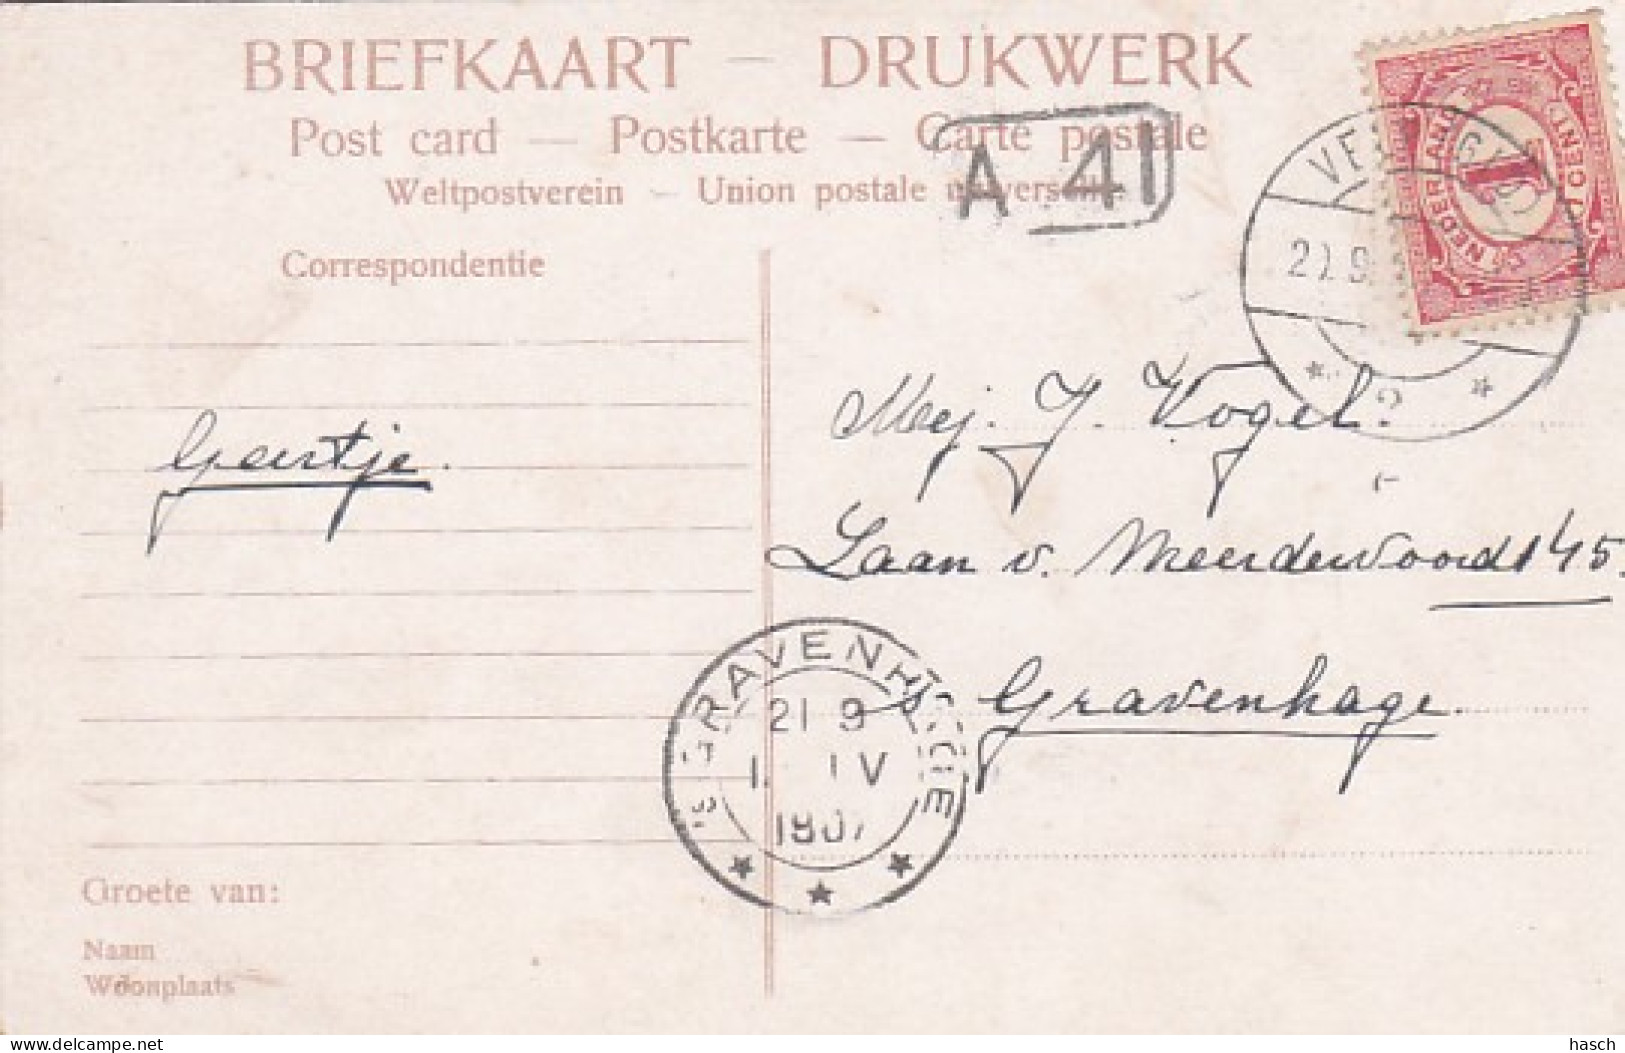 BRIEFKAART — DRUKWERK
Post card — Postkarte — Carte postale
Weltpostverein — Union postale universelle
A 41
NEDERLAND
1
1 CENT
Correspondentie
Geertje.
Mej. J. Vogel.
Laan v. Meerdervoord 145.
's Gravenhage.
'S GRAVENHAGE
21 9
IV
1907
Groete van:
Naam
Woonplaats
delcampe.net
hasch